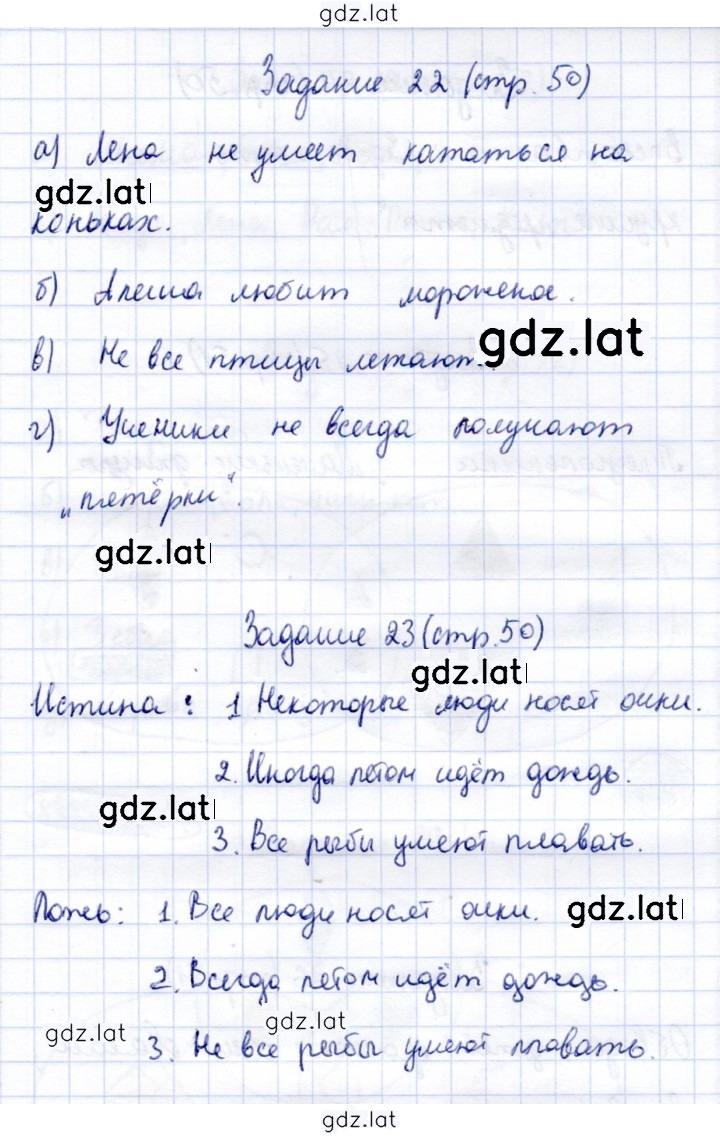 gdz.lat
Задание 22 (стр. 50)
а) Лена не умеет кататься на
gdz.lat
коньках.
б) Алеша любит мороженое.
в) Не все птицы летают.
gdz.lat
г) Ученики не всегда получают
„пятёрки“.
gdz.lat
Задание 23 (стр. 50)
gdz.lat
Истина: 1 Некоторые люди носят очки.
2. Иногда летом идёт дождь.
gdz.lat
3. Все рыбы умеют плавать.
Ложь: 1. Все люди носят очки.
gdz.lat
2. Всегда летом идёт дождь.
gdz.lat
gdz.lat
3. Не все рыбы умеют плавать.
gdz.lat